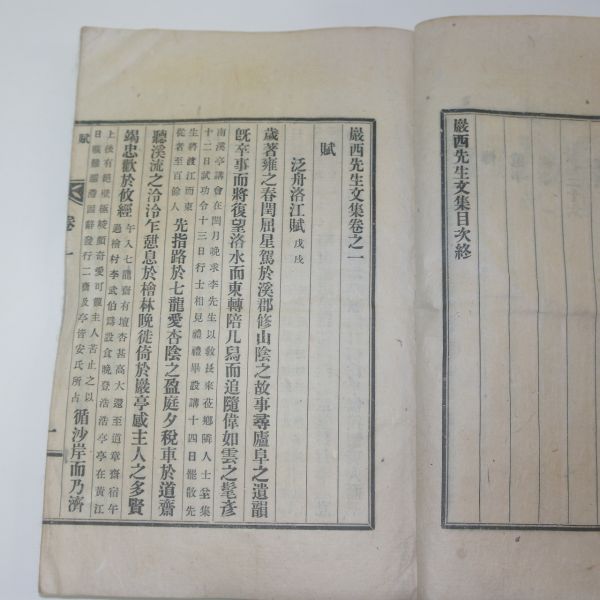 巖西先生文集目次終
巖西先生文集卷之一
賦
泛舟洛江賦 戊戌
歲著雍之春閏屈星駕於溪郡修山陰之故事尋廬阜之遺韻
旣卒事而將復望洛水而東轉陪几舄而追隨偉如雲之髦彦
南溪亭講會在閏月晩求李先生以敎長來莅鄕隣人士坌集
十二日試功令十三日行士相見禮禮畢設講十四日罷散先
生將渡江而東
從者至百餘人
先指路於七龍愛杏陰之盈庭夕稅車於道齋
聽溪流之泠泠乍憩息於檜林晩徙倚於巖亭感主人之多賢
竭忠歡於攸經
午入七龍齋有壇杏甚高大還至道章齋宿午
過檜村李武伯爲設食晩登浩浩亭亭在黃江
上後有絶壁極峻頗奇愛可觀主人苦止之以
日
發行二齋及亭皆安氏所占
循沙岸而乃濟
賦
卷一
一